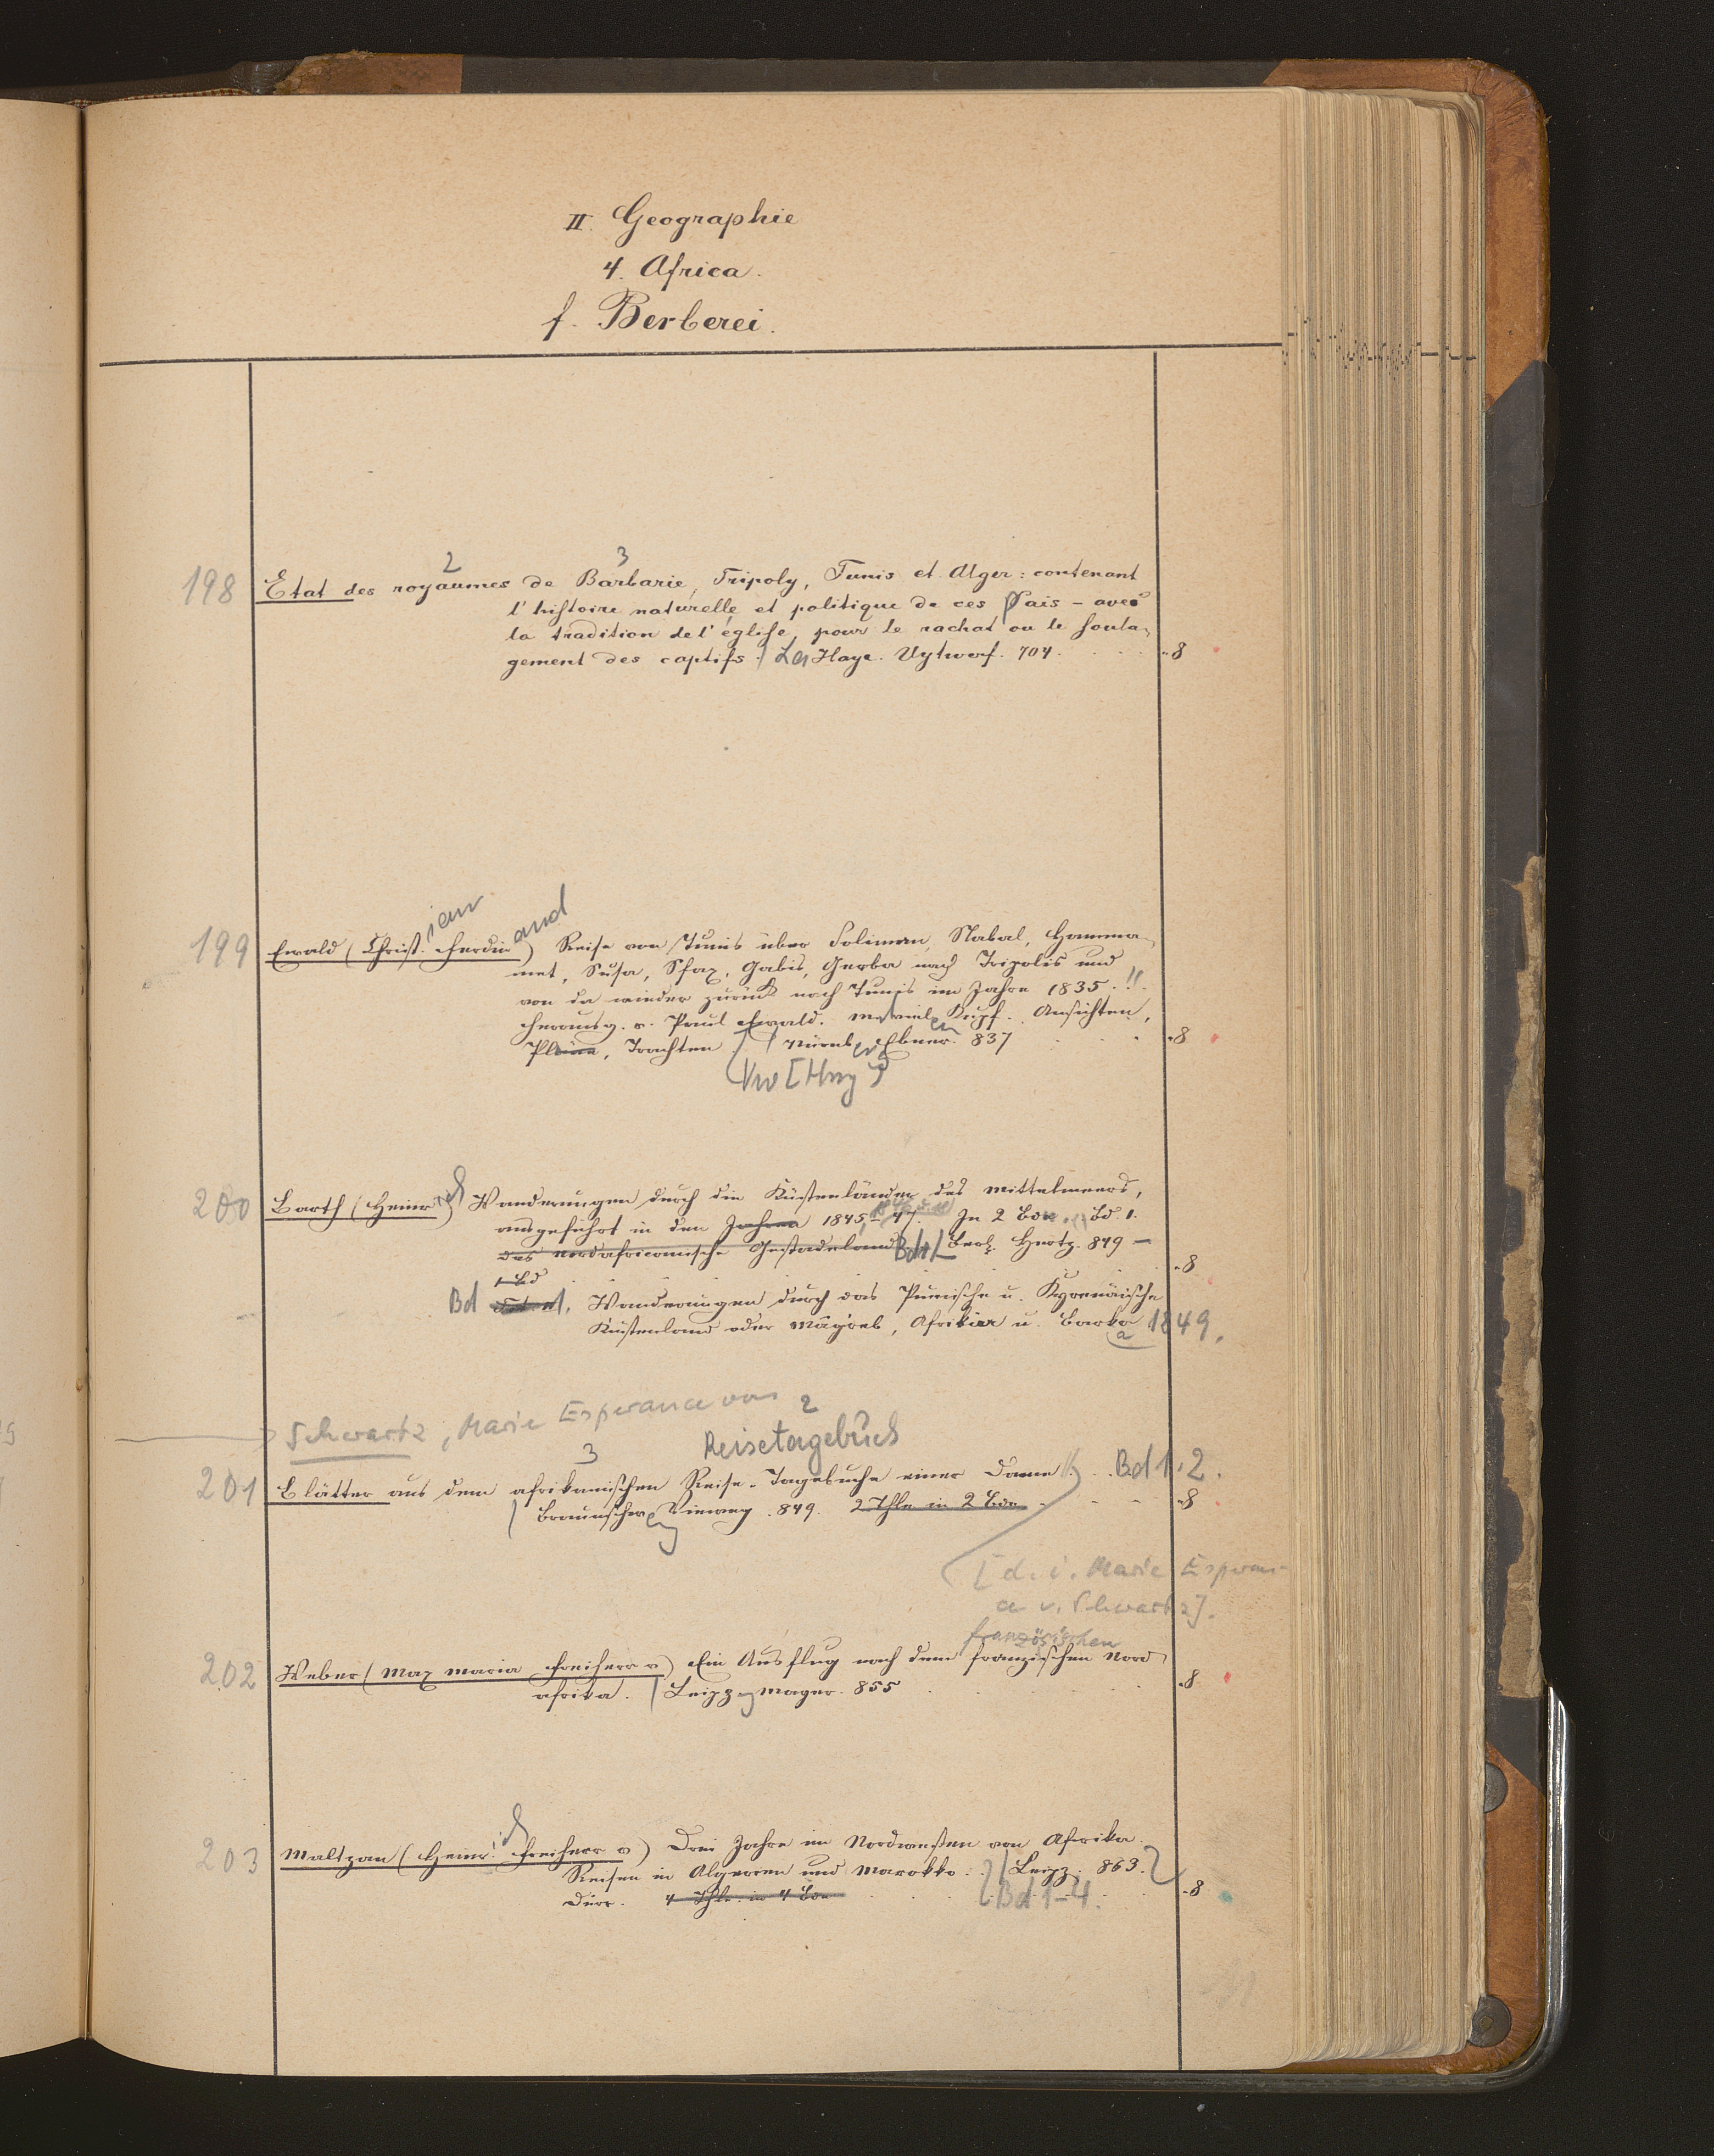 II. Geographie
4. Africa.
f. Berberei.
2 3
198 Etat des royaumes de Barbarie, Tripoly, Tunis et Alger: contenant
l'histoire naturelle et politique de ces Pais - avec
la tradition de l'église, pour le rachat ou le soula-
gement des captifs. La Haye. Uytwerf. 704. 8
ian and
199 Ewald (Christ. Ferdin) Reise von Tunis über Soliman, Nabal, Hamma-
met, Susa, Sfax, Gabis, Gerba nach Tripolis und
von da wieder zurück nach Tunis im Jahre 1835.
Herausg. v. Paul Ewald. M. viel Kupf. Ansichten,
Pläne, Trachten Nürnb Ebner. 837 8
200 Barth (Heinrich) Wanderungen durch die Küstenländer des Mittelmeers,
ausgeführt in den Jahren 1845, - 47. In 2 Bdn. Bd. 1.
Das nordafricanische Gestadeland Bd 1 Berl. Hertz. 849 -
1 Bd 8
Bd 1. Wanderungen durch das Punische u. Kyrenäische
Küstenland oder Mâgreb, Afrikia u. Barka 1849.
Schwartz, Marie Esperance von 2
3 Reisetagebuch
201 Blätter aus dem afrikanischen Reise-Tagebuche einer Dame. Bd 1.2.
Braunschw Vieweg. 849. 2 Thle in 2 Bdn 8
[d. i. Marie Esperan-
ce v. Schwartz].
französischen
202 Weber (Max Maria Freiherr v) Ein Ausflug nach dem französischen Nord-
afrika. Leipz Mayer. 855 8
203 Maltzan (Heinr. ich Freiherr v) Drei Jahre im Nordwesten von Afrika.
Reisen in Algerien und Marokko. Leipz. 863.
Dürr. 4 Thle. in 4 Bdn Bd 1-4. 8